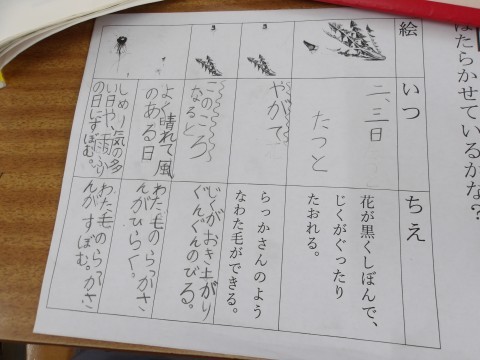 はたらかせているかな？
絵
いつ
ちえ
二、三日
たつと
花が黒くしぼんで、
じくがぐったり
たおれる。
やがて
らっかさんのよう
なわた毛ができる。
このころ
なると
じくがおき上がり
ぐんぐんのびる。
よく晴れて風
のある日
わた毛のらっかさ
んがひらく。
しめり気の多
い日や、雨ふり
の日にすぼむ。
わた毛のらっかさ
んがすぼむ。